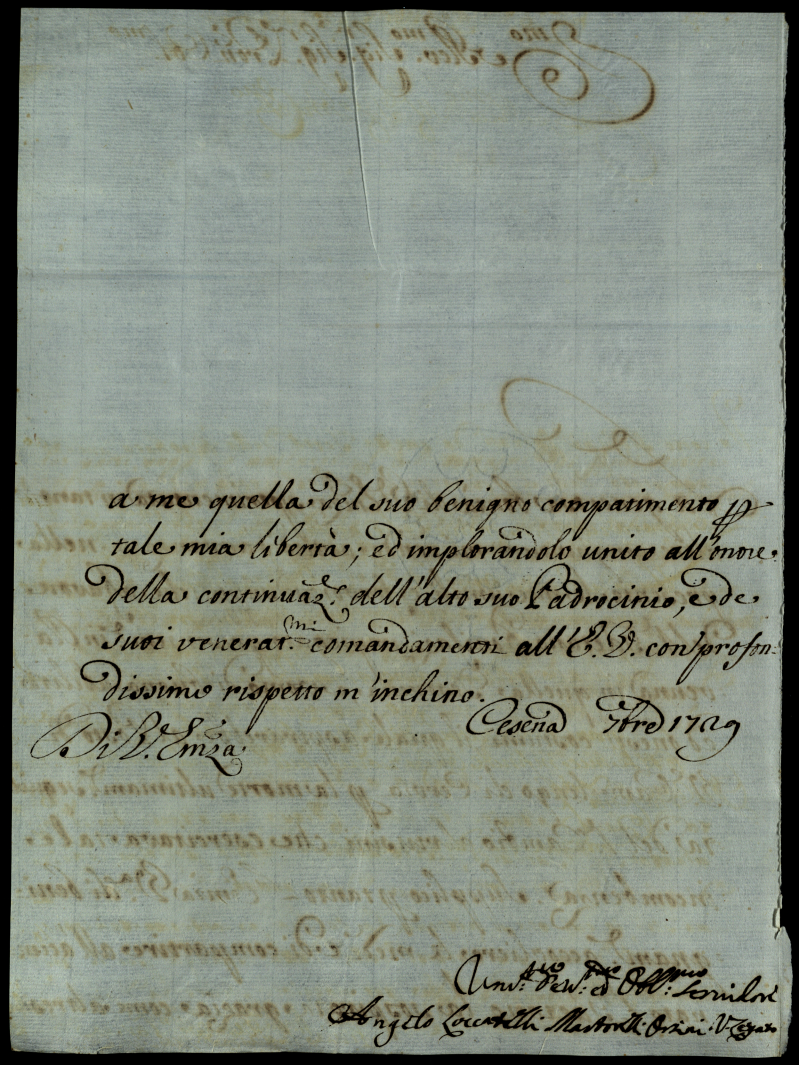 a me quella del suo benigno compatimento p
tale mia libertà; ed implorandolo unito all'onore
della continuaz.e dell'alto suo Padrocinio, e de
suoi venerat.mi comandamenti all'E.V. con profon-
dissimo rispetto m'inchino.
Cesena 7bre 1729
Di V. Emza
Um.mo Dev.mo ed Obb.mo Servidore
Angelo Locatelli Martorelli Orsini